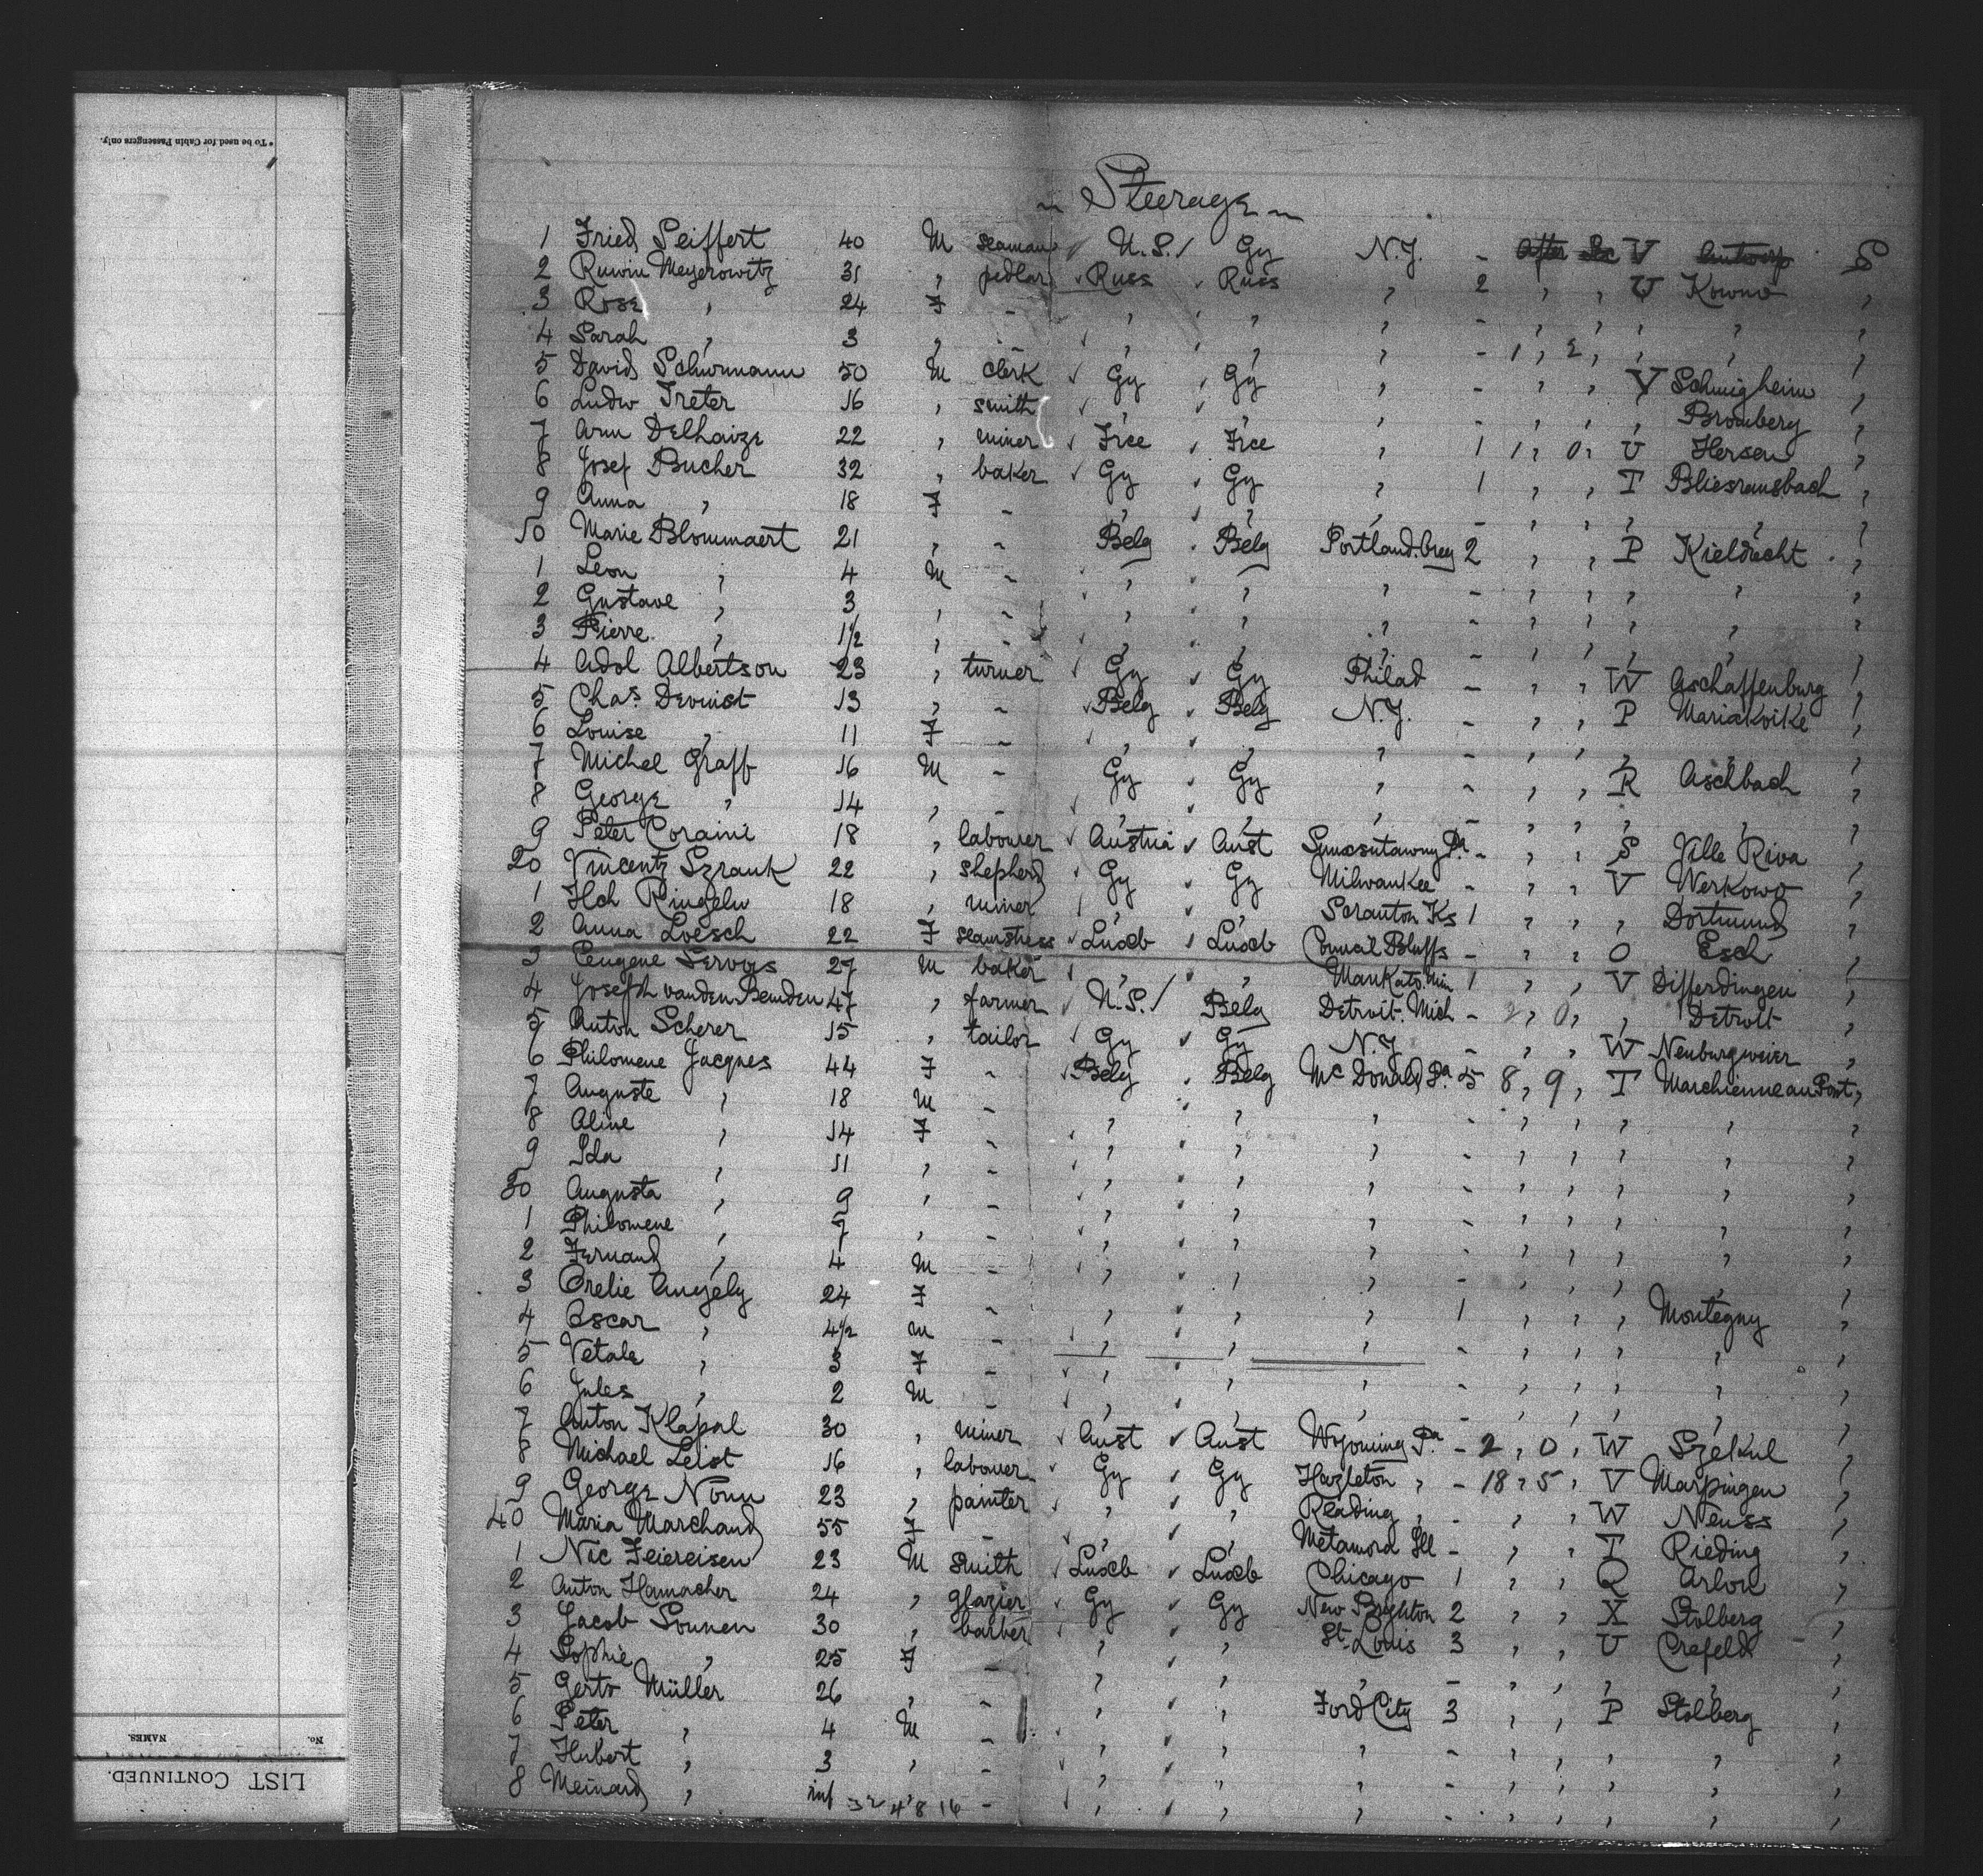 *To be used for Cabin Passengers only.
~ Steerage ~
1 Fried Seiffert 40 M seaman U.S./ Gy N.Y. - After Sc V Antwerp S
2 Ruwin Meyerowitz 31 , pedlar Russ Russ , 2 , , V Kowno ,
3 Rose , 24 F - , , , - , , , , ,
4 Sarah , 3 , - , , , - 1 , 2 , , , ,
5 David Schurmann 50 M clerk Gy Gy , - , , V Schmigheim ,
6 Ludw Treter 16 , smith , , , - , , , Bromberg ,
7 Arm Delhaize 22 , miner Frce Frce , 1 1 , 0 , U Hersen ,
8 Josef Bucher 32 , baker Gy Gy , 1 , , T Bliesransbach ,
9 Anna , 18 F - , , , - , , , , ,
10 Marie Blommaert 21 , - Belg Belg Portland. Oreg 2 , , P Kieldrecht ,
1 Leon , 4 M - , , , - , , , , ,
2 Gustave , 3 , - , , , - , , , , ,
3 Pierre , 1½ , - , , , - , , , , ,
4 Adol Albertson 23 , turner Gy Gy Philad - , , W Aschaffenburg ,
5 Chas. Devinst 13 , - Belg Belg N.Y. - , , P Mariakvike ,
6 Louise , 11 F - , , , - , , , , ,
7 Michel Graff 16 M - Gy Gy , - , , R Aschbach ,
8 George , 14 , - , , , - , , , , ,
9 Peter Coraini 18 , labourer Austria Aust Pa. - , , S Ville Riva ,
20 Vincentz Szrank 22 , shepherd Gy Gy Milwaukee - , , V Werkowo ,
1 Hch Ringeln 18 , miner , , Scranton Ks 1 , , , Dortmund ,
2 Anna Loesch 22 F seamstress Luxb Luxb Council Bluffs - , , O Esch ,
3 Eugene Servais 27 M baker , , Mankato. Min 1 , , V Differdingen ,
4 Joseph vanden Bemden 47 , farmer U.S./ Belg Detroit. Mich - 2 , 0 , , Detroit ,
5 Anton Scherer 15 , tailor Gy Gy N.Y. - , , W Neuburgweier ,
6 Philomene Jacques 44 F - Belg Belg McDonald Pa. 5 8 , 9 , T Marchienne au Pont ,
7 Auguste , 18 M - , , , - , , , , ,
8 Aline , 14 F - , , , - , , , , ,
9 Ida , 11 , - , , , - , , , , ,
30 Augusta , 9 , - , , , - , , , , ,
1 Philomene , 7 , - , , , - , , , , ,
2 Fernand , 4 M - , , , - , , , , ,
3 Orelie Angely 24 F - , , , 1 , , , Montegny ,
4 Oscar , 4½ M - , , , - , , , , ,
5 Vetale , 3 F - , , , - , , , , ,
6 Jules , 2 M - , , , - , , , , ,
7 Anton Klapal 30 , miner Aust Aust Wyoming Pa. - 2 , 0 , W Szekul ,
8 Michael Leist 16 , labourer Gy Gy Hazleton , - 18 , 5 , V Marpingen ,
9 George Nonn 23 , painter , , Reading , - , , W Neuss ,
40 Maria Marchand 55 F - , , Metamora Ill - , , T Rieding ,
1 Nic Feiereisen 23 M smith Luxb Luxb Chicago 1 , , Q Arlon ,
2 Anton Hamacher 24 , glazier Gy Gy New Brighton 2 , , X Stolberg ,
3 Jacob Sonnen 30 , barber , , St. Louis 3 , , U Crefeld ,
4 Sophie , 25 F - , , , - , , , , ,
5 Gertr Müller 26 , - , , Ford City 3 , , P Stolberg ,
6 Peter , 4 M - , , , - , , , , ,
7 Hubert , 3 , - , , , - , , , , ,
8 Meinard , inf - , , , - , , , , ,
3 4 8 16
No. NAMES.
LIST CONTINUED.